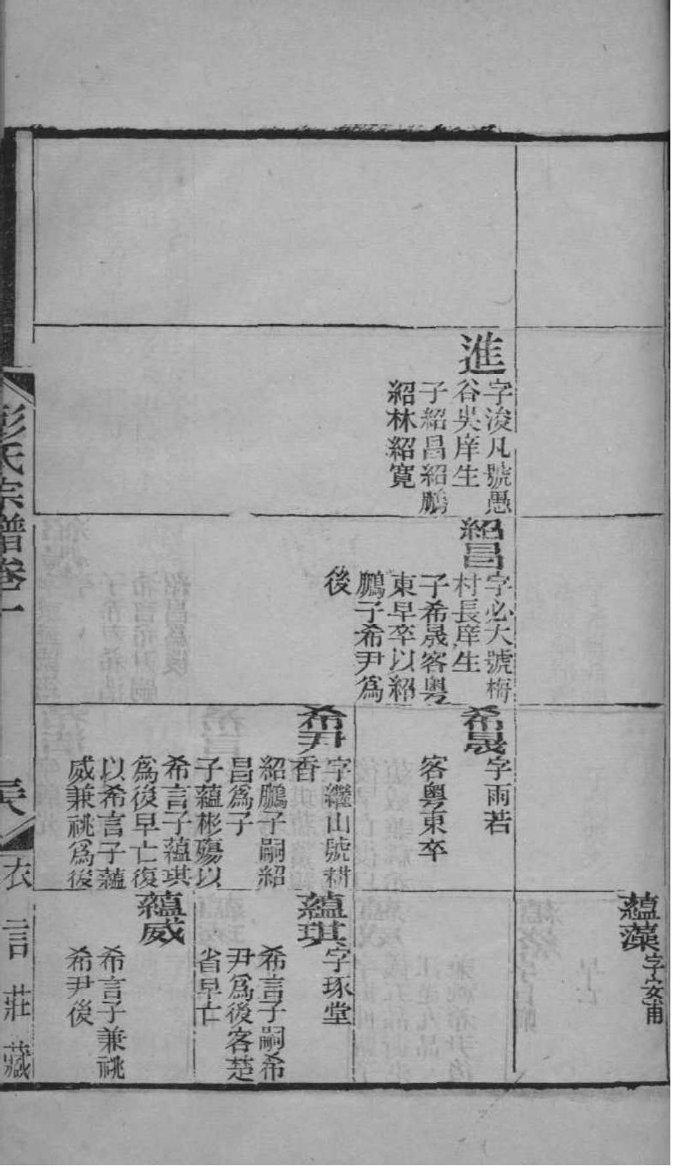 進
字浚凡號愚
谷吳庠生
子紹昌紹鵬
紹林紹寬
紹昌
字必大號梅
村長庠生
子希晟客粵
東早卒以紹
鵬子希尹為
後
希晟
字雨若
客粵東卒
希尹
字繼山號耕
香
紹鵬子嗣紹
昌為子
子蘊彬殤以
希言子蘊琪
為後早亡復
以希言子蘊
威兼祧為後
蘊藻
字安甫
蘊琪
字琢堂
希言子嗣希
尹為後客楚
省早亡
蘊威
希言子兼祧
希尹後
彭氏宗譜卷一
衣言莊藏